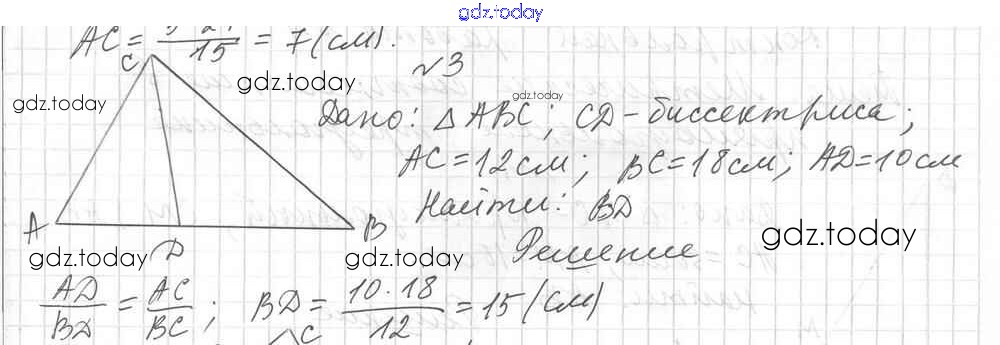 gdz.today
AC = 15 = 7 (см).
№3
C
gdz.today
gdz.today
gdz.today
Дано: △ABC; CD-биссектриса;
AC = 12 см; BC = 18 см; AD = 10 см
Найти: BD
A D B
gdz.today
gdz.today
gdz.today
Решение
AD/BD = AC/BC; BD = 10·18/12 = 15 (см)
C